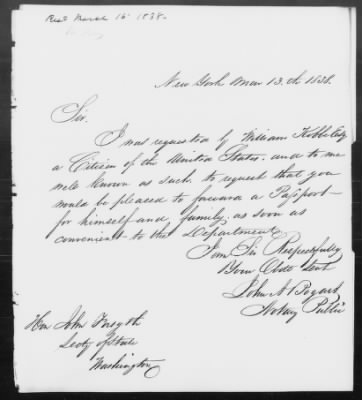 Recd March 16 1838.
New York Mar 13.th 1838.
Sir.
I was requested by William Kobbe Esq
a Citizen of the United States. and to me
well known as such, to request that you
would be pleased to forward a Passport
for himself and family; as soon as
convenient to the Department
I am Sir Respectfully
Your Obdt Servt
John A Bogart
Notary Public
Hon John Forsyth
Secty of State
Washington